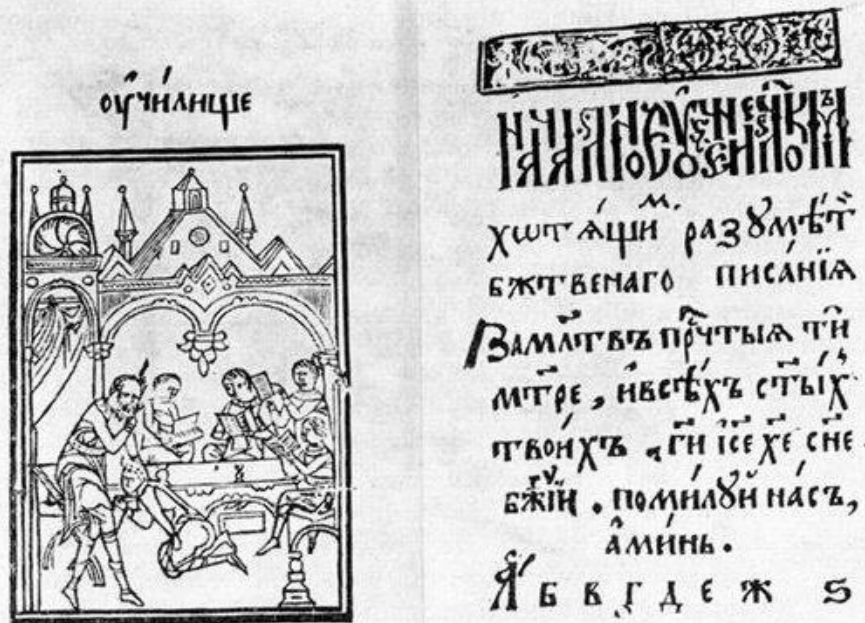 оу҆чи́лище
хотѧ́щи́м разꙋмѣ́т
бжтвенаго писа́нїѧ
Замл҃твъ пр҃чтыѧ тѝ
мт҃ре, и҆всѣ́хъ ст҃ы́х
твои́хъ, гд҃и і҆с҃е х҃е сн҃е
бж҃їй. поми́лꙋй на́съ,
а҆ми́нь.
А҆ Б В Г Д Е Ж Ѕ